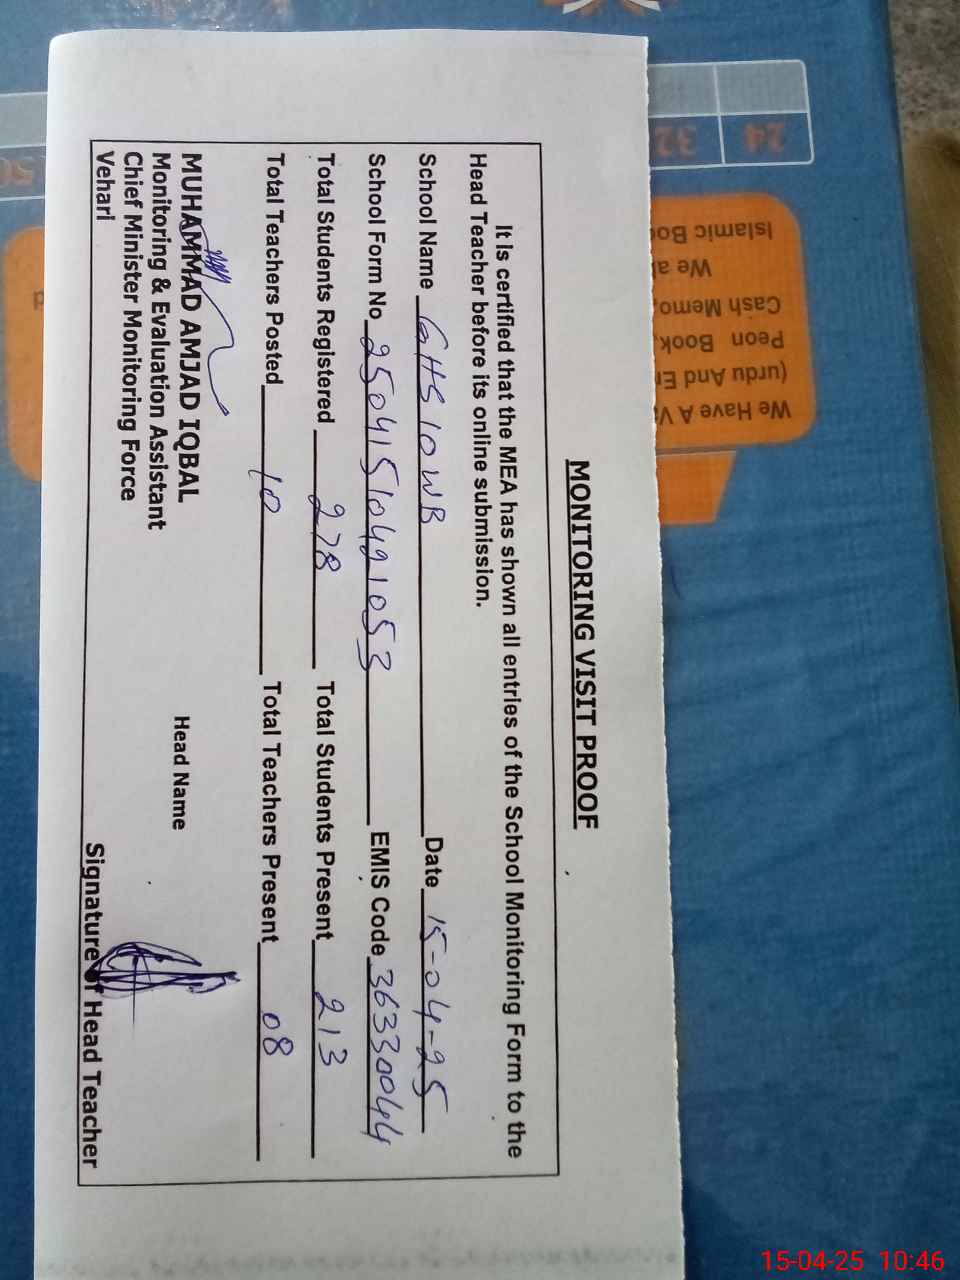 MONITORING VISIT PROOF
It is certified that the MEA has shown all entries of the School Monitoring Form to the
Head Teacher before its online submission.
School Name GHS 10WB Date 15-04-25
School Form No 25041510421053 EMIS Code 36330044
Total Students Registered 278 Total Students Present 213
Total Teachers Posted 10 Total Teachers Present 08
MUHAMMAD AMJAD IQBAL
Monitoring & Evaluation Assistant
Chief Minister Monitoring Force
Vehari
Head Name
Signature of Head Teacher
24
32
We Have A
(urdu And
Peon Book,
Cash Memo,
We
Islamic
15-04-25 10:46